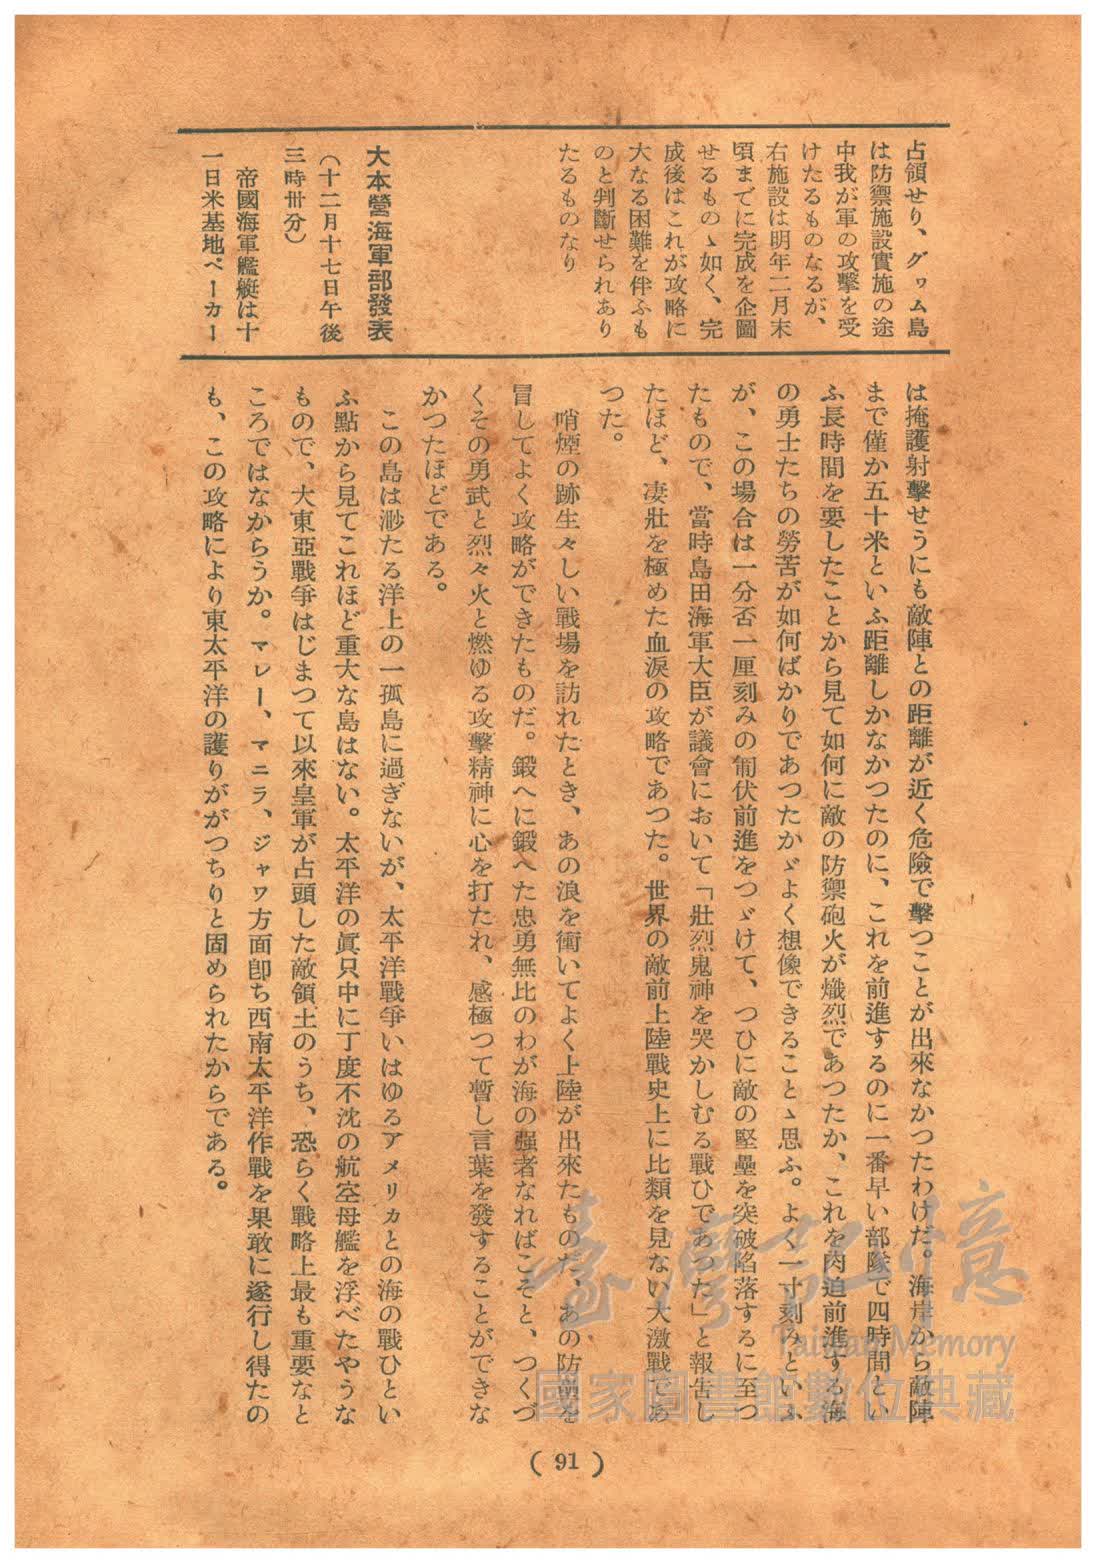 占領せり、グヮム島
は防禦施設實施の途
中我が軍の攻擊を受
けたるものなるが、
右施設は明年二月末
頃までに完成を企圖
せるものゝ如く、完
成後はこれが攻略に
大なる困難を伴ふも
のと判斷せられあり
たるものなり
大本營海軍部發表
(十二月十七日午後
三時卅分)
帝國海軍艦艇は十
一日米基地ベーカー
は掩護射擊せうにも敵陣との距離が近く危險で擊つことが出來なかつたわけだ。海岸から敵陣
まで僅か五十米といふ距離しかなかつたのに、これを前進するのに一番早い部隊で四時間とい
ふ長時間を要したことから見て如何に敵の防禦砲火が熾烈であつたか、これを肉迫前進する海
の勇士たちの勞苦が如何ばかりであつたかゞよく想像できることゝ思ふ。よく一寸刻みといふ
が、この場合は一分否一厘刻みの匍伏前進をつゞけて、つひに敵の堅壘を突破陷落するに至つ
たもので、當時島田海軍大臣が議會において「壯烈鬼神を哭かしむる戰ひであつた」と報告し
たほど、凄壯を極めた血淚の攻略であつた。世界の敵前上陸戰史上に比類を見ない大激戰であ
つた。
哨煙の跡生々しい戰場を訪れたとき、あの浪を衝いてよく上陸が出來たものだ、あの防禦を
冒してよく攻略ができたものだ。鍛へに鍛へた忠勇無比のわが海の强者なればこそと、つくづ
くその勇武と烈々火と燃ゆる攻擊精神に心を打たれ、感極つて暫し言葉を發することができな
かつたほどである。
この島は渺たる洋上の一孤島に過ぎないが、太平洋戰爭いはゆるアメリカとの海の戰ひとい
ふ點から見てこれほど重大な島はない。太平洋の眞只中に丁度不沈の航空母艦を浮べたやうな
もので、大東亞戰爭はじまつて以來皇軍が占領した敵領土のうち、恐らく戰略上最も重要なと
ころではなからうか。マレー、マニラ、ジャワ方面卽ち西南太平洋作戰を果敢に遂行し得たの
も、この攻略により東太平洋の護りががつちりと固められたからである。
( 91 )
臺灣記憶
Taiwan Memory
國家圖書館數位典藏